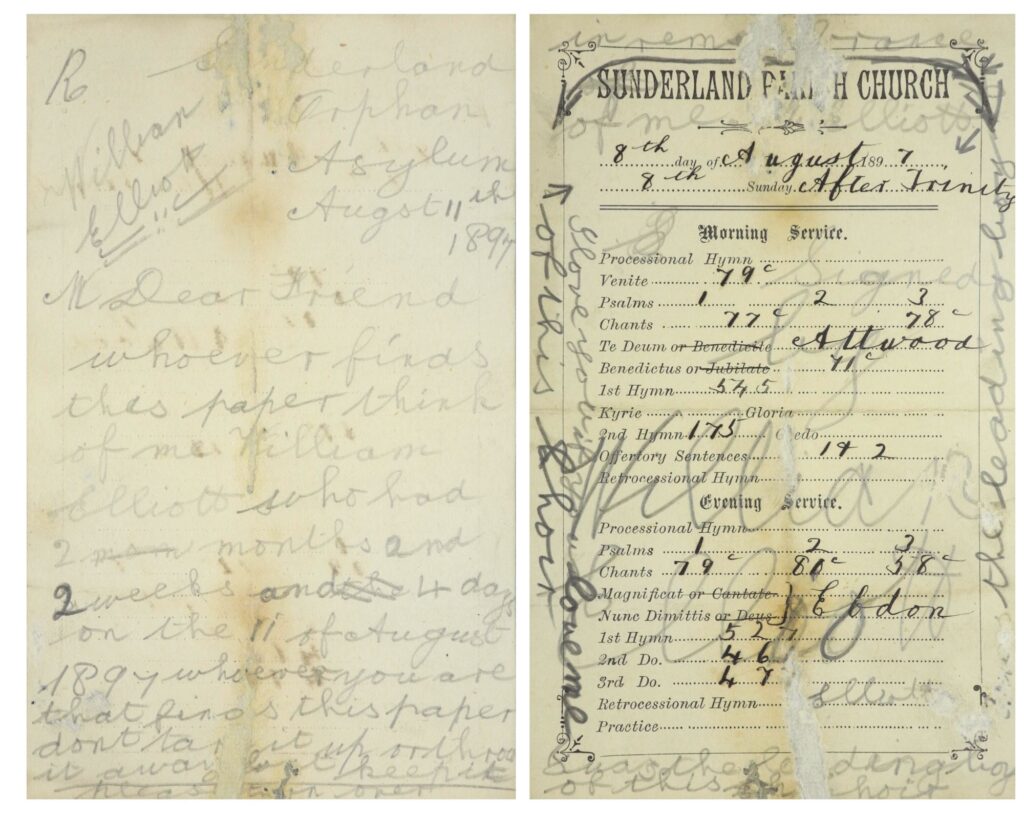 R
William
Elliott
Sunderland
Orphan
Asylum
Augst 11th
1897
M Dear Friend
whoever finds
this paper think
of me William
Elliott who had
2 months and
2 weeks and 4 days
on the 11 of August
1897 whoever you are
that finds this paper
dont tar it up or throw
it away but keep it
in remembrance
SUNDERLAND PARISH CHURCH
of me Elliott
8th day of August 1897
8th Sunday After Trinity
Morning Service.
Processional Hymn
Signed
Venite 79c
Psalms 1 2 3
Chants 77c 78c
Te Deum or Benedicite Attwood
Benedictus or Jubilate 71c
1st Hymn 545
Kyrie Gloria
2nd Hymn 175 Credo
Offertory Sentences 14 2
Retrocessional Hymn
Evening Service.
Processional Hymn
Psalms 1 2 3
Chants 79c 80c 58c
Magnificat or Cantate
Nunc Dimittis or Deus } Ebdon
1st Hymn 527
2nd Do. 46
3rd Do. 47
Retrocessional Hymn
Elliott
Practice
I was the leading
of this choir
I love you if you love me
of this choir
the leading boy